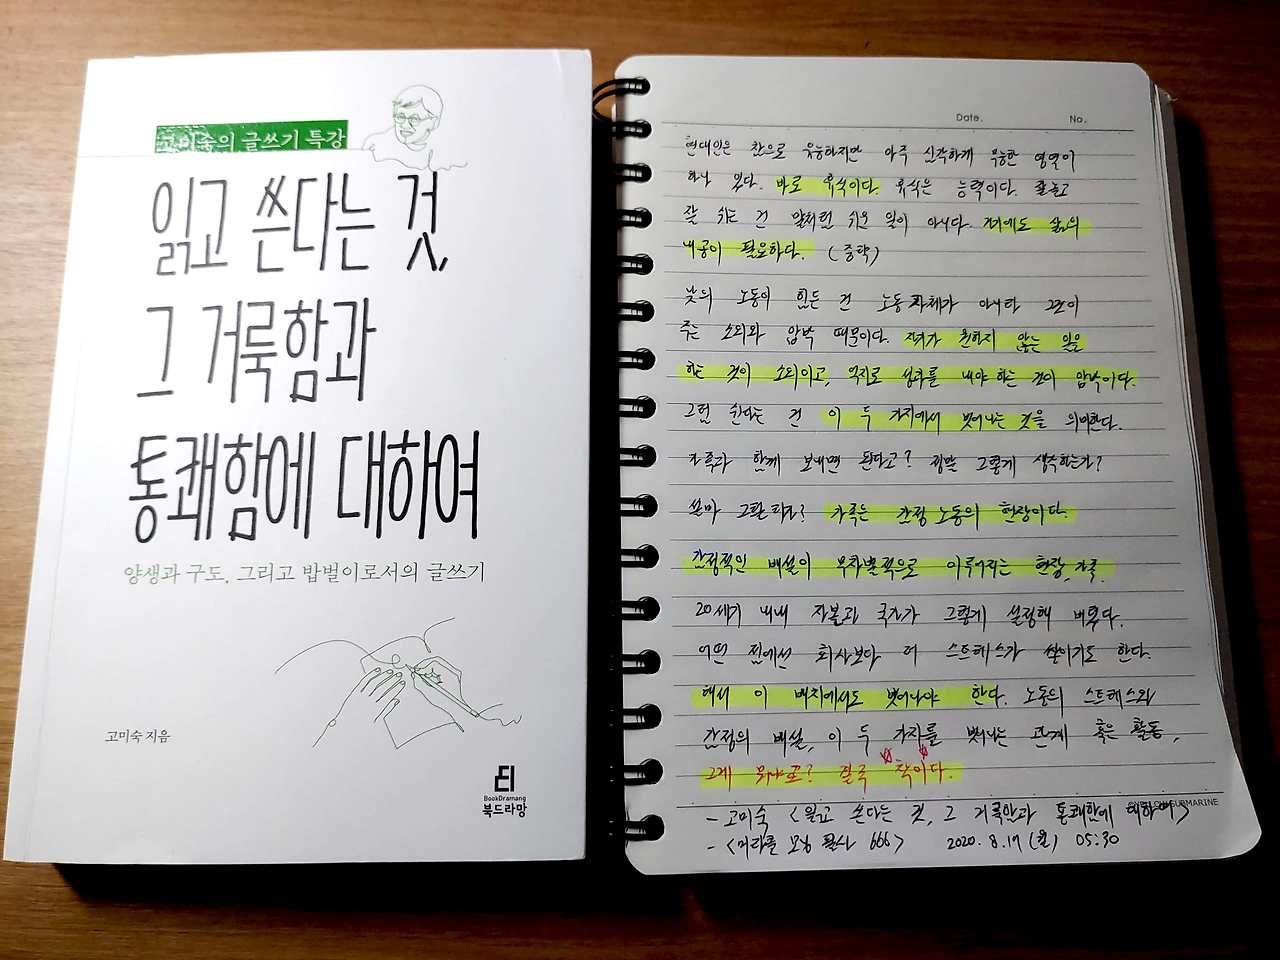 고미숙의 글쓰기 특강
읽고 쓴다는 것,
그 거룩함과
통쾌함에 대하여
양생과 구도, 그리고 밥벌이로서의 글쓰기
고미숙 지음
BookDramang
북드라망
Date.
No.
현대인은 참으로 유능하지만 아주 심각하게 무능한 영역이
하나 있다. 바로 휴식이다. 휴식은 능력이다. 잘 놀고
잘 쉬는 건 말처럼 쉬운 일이 아니다. 거기에도 삶의
내공이 필요하다. (중략)
낮의 노동이 힘든 건 노동 자체가 아니라 그것이
주는 소외와 압박 때문이다. 자기가 원하지 않는 일을
하는 것이 소외이고, 억지로 성과를 내야 하는 것이 압박이다.
그럼 쉰다는 건 이 두 가지에서 벗어나는 것을 의미한다.
가족과 함께 보내면 된다고? 정말 그렇게 생각하는가?
설마 그럴 리가? 가족은 감정 노동의 현장이다.
감정적인 배설이 무차별적으로 이루어지는 현장, 가족.
20세기 내내 자본과 국가가 그렇게 설정해 버렸다.
어떤 점에선 회사보다 더 스트레스가 쌓이기도 한다.
해서 이 배치에서도 벗어나야 한다. 노동의 스트레스와
감정의 배설, 이 두 가지를 벗어나는 관계 혹은 활동,
그게 뭐냐고? 결국 책이다.
SUBMARINE
- 고미숙 <읽고 쓴다는 것, 그 거룩함과 통쾌함에 대하여>
- <미라클 모닝 필사 666> 2020. 8. 17 (월) 05:30